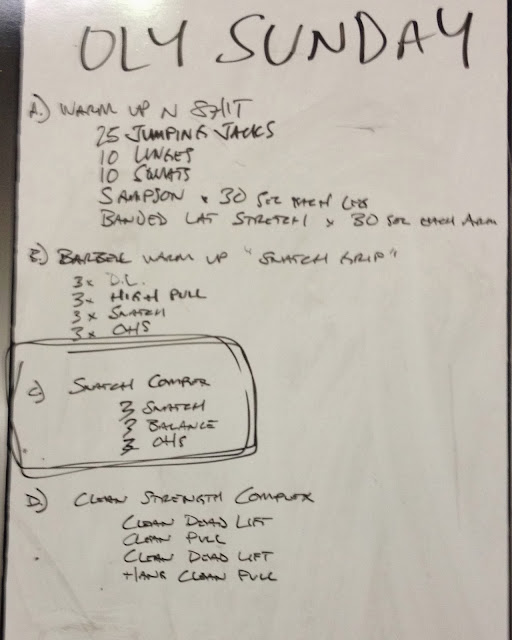 OLY SUNDAY
A.) WARM UP N SHIT
25 JUMPING JACKS
10 LUNGES
10 SQUATS
SAMPSON x 30 SEC EACH LEG
BANDED LAT STRETCH x 30 SEC EACH ARM
B.) BARBELL WARM UP "SNATCH GRIP"
3x D.L.
3x HIGH PULL
3x SNATCH
3x OHS
C) SNATCH COMPLEX
3 SNATCH
3 BALANCE
3 OHS
D.) CLEAN STRENGTH COMPLEX
CLEAN DEAD LIFT
CLEAN PULL
CLEAN DEAD LIFT
HANG CLEAN PULL